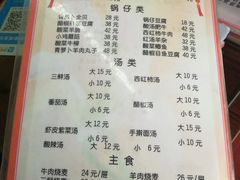 锅仔类
28元 锅仔豆腐 18元
醋椒豆腐 28元 酸汤肥牛 42元
酸菜羊肉 42元 西红柿牛肉 38元
小鸡蘑菇 38元 红汤羊杂 32元
酸菜牛棒 酸菜鲫鱼 38元
青萝卜羊肉丸子 醋椒白鱼豆腐 48元
汤类
三鲜汤 大 15元 西红柿汤 大 10元
小 10元 小 6元
番茄汤 大 10元 醋椒汤 大 10元
小 6元 小 6元
虾皮紫菜汤 大 10元 手撕面汤 大 10元
小 6元 小 6元
酸辣汤 大 12元 小 6元
主食
牛肉烧麦 24元/屉 羊肉烧麦 26元/